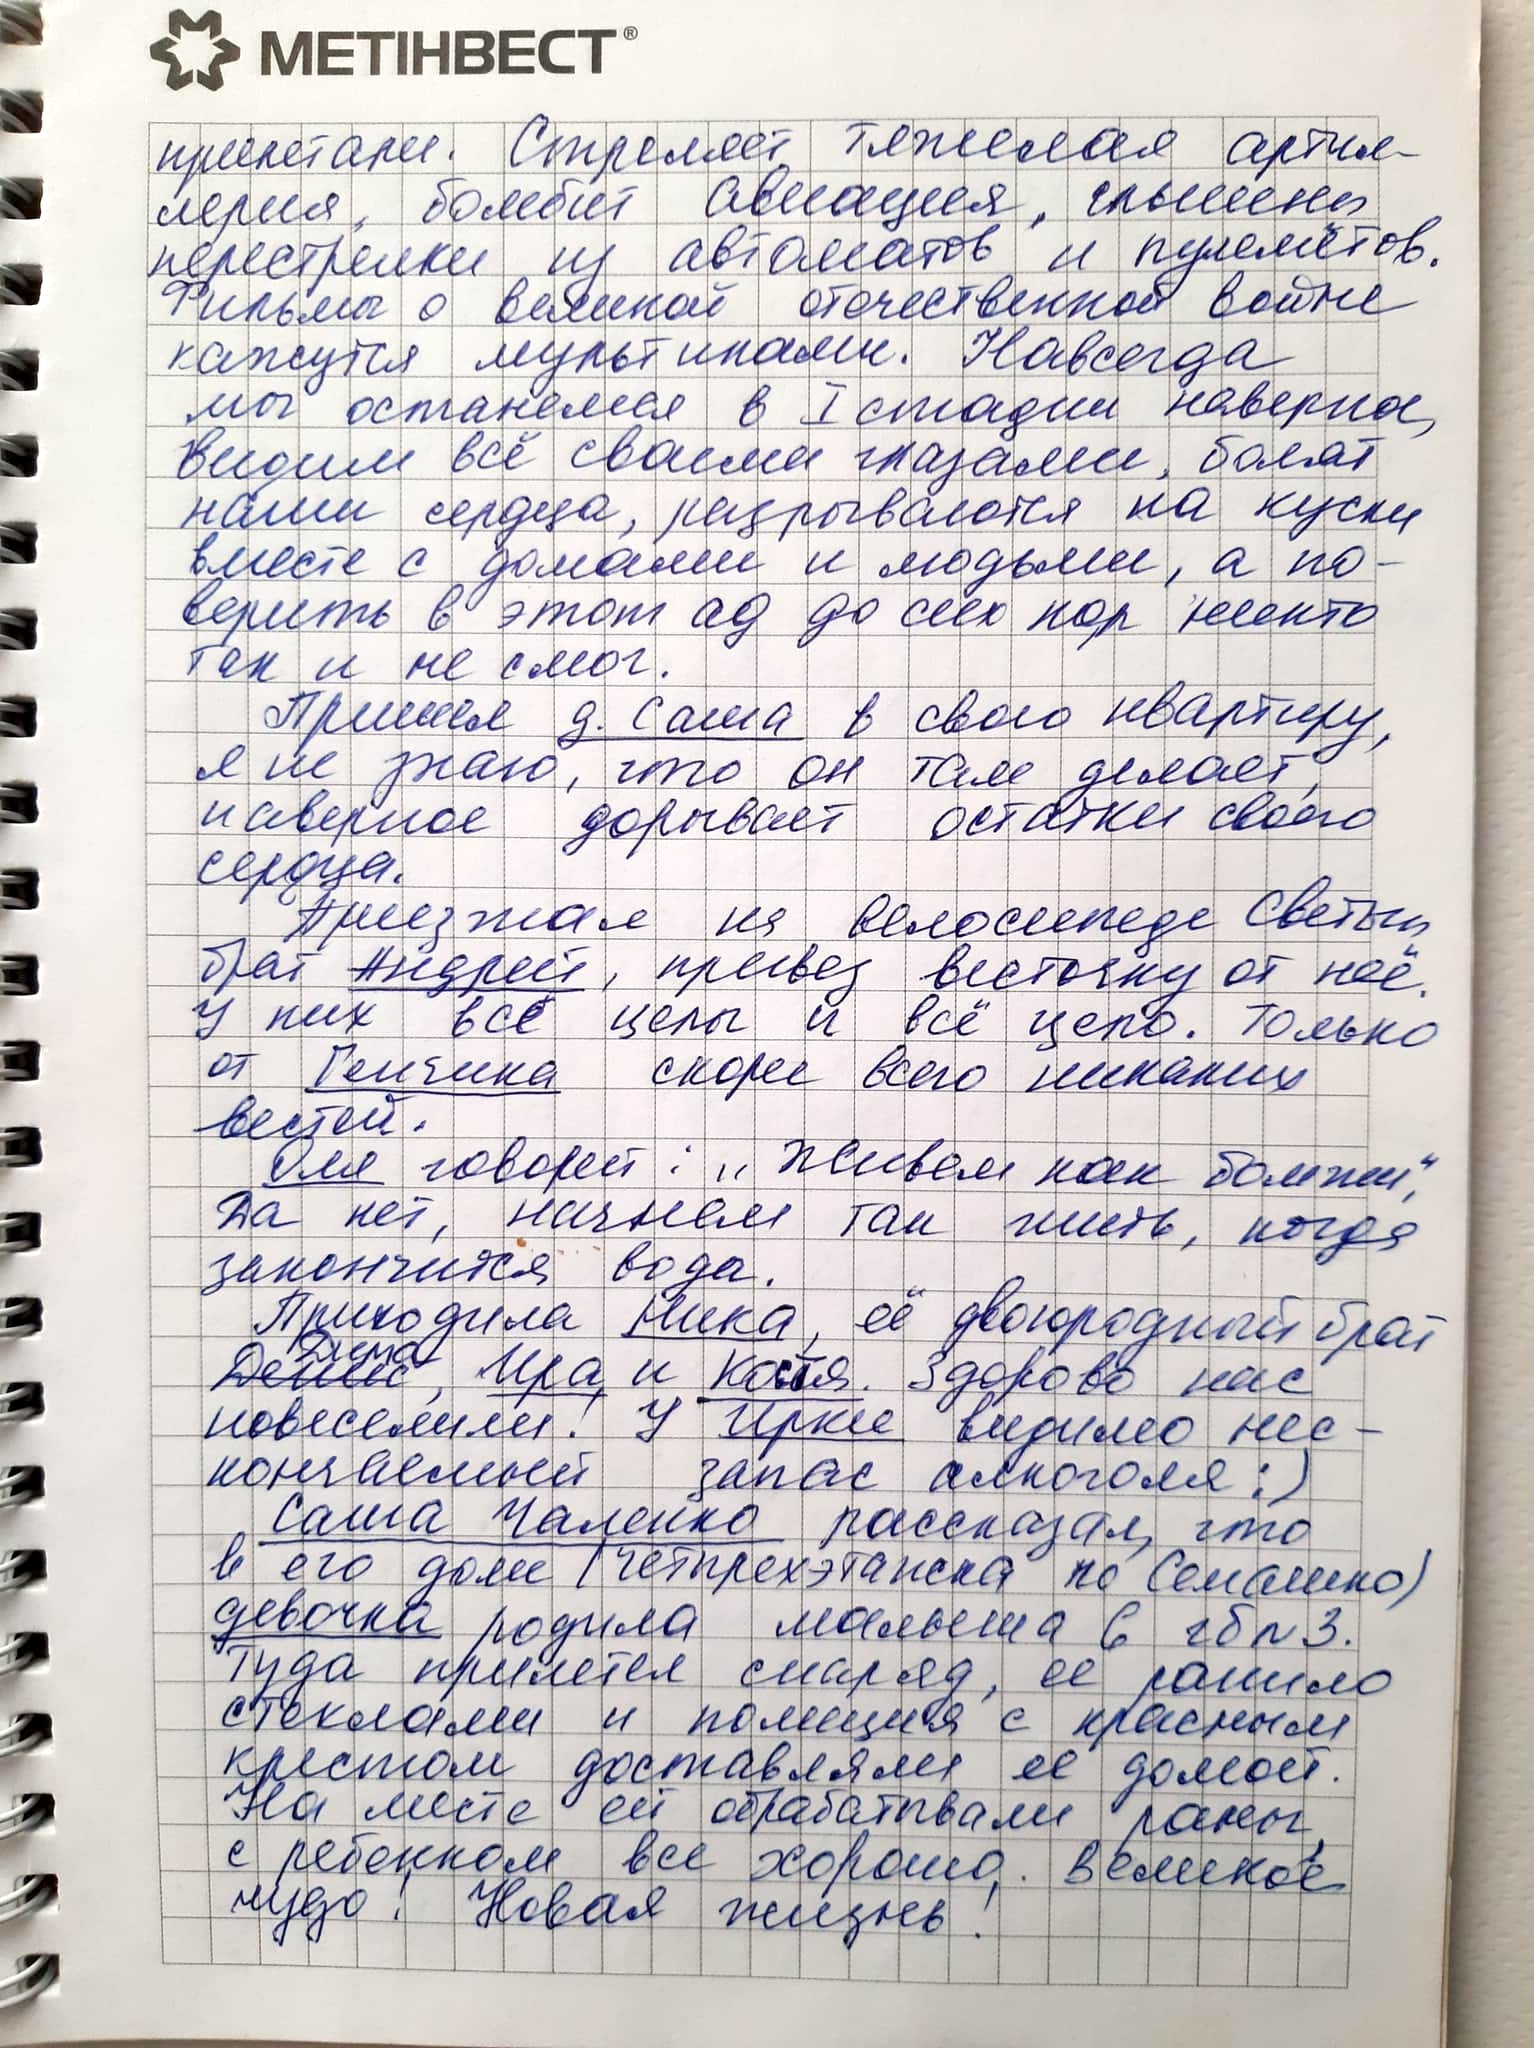 МЕТІНВЕСТ®
прилетали. Стреляет тяжелая артил-
лерия, бомбит авиация, слышны
перестрелки из автоматов и пулемётов.
Фильмы о великой отечественной войне
кажутся мультиками. Навсегда
мы останемся в I стадии наверное,
видим всё своими глазами, болят
наши сердца, разрываются на куски
вместе с домами и людьми, а по-
верить в этот ад до сих пор никто
так и не смог.
Пришел д. Саша в свою квартиру,
я не знаю, что он там делает,
наверное дорывает остатки своего
сердца.
Приезжал на велосипеде Светын
брат Андрей, привез весточку от неё.
У них все целы и всё цело. Только
от Генчика скорее всего никаких
вестей.
Оля говорит: „Живем как бомжи",
Да нет, начнем так жить, когда
закончится вода.
Приходила Ника, её двоюродный брат
Дима
Денис, Ира, и Костя. Здорово нас
повеселили! У Ирки видимо нес-
кончаемый запас алкоголя :)
Саша Чаленко рассказал, что
в его доме (четырехэтажка по Семашко)
девочка родила малыша в гб N 3.
Туда прилетел снаряд, ее ранило
стеклами и полиция с красным
крестом доставляли ее домой.
На месте ей обрабатывали раны,
с ребенком все хорошо. Великое
чудо! Новая жизнь!